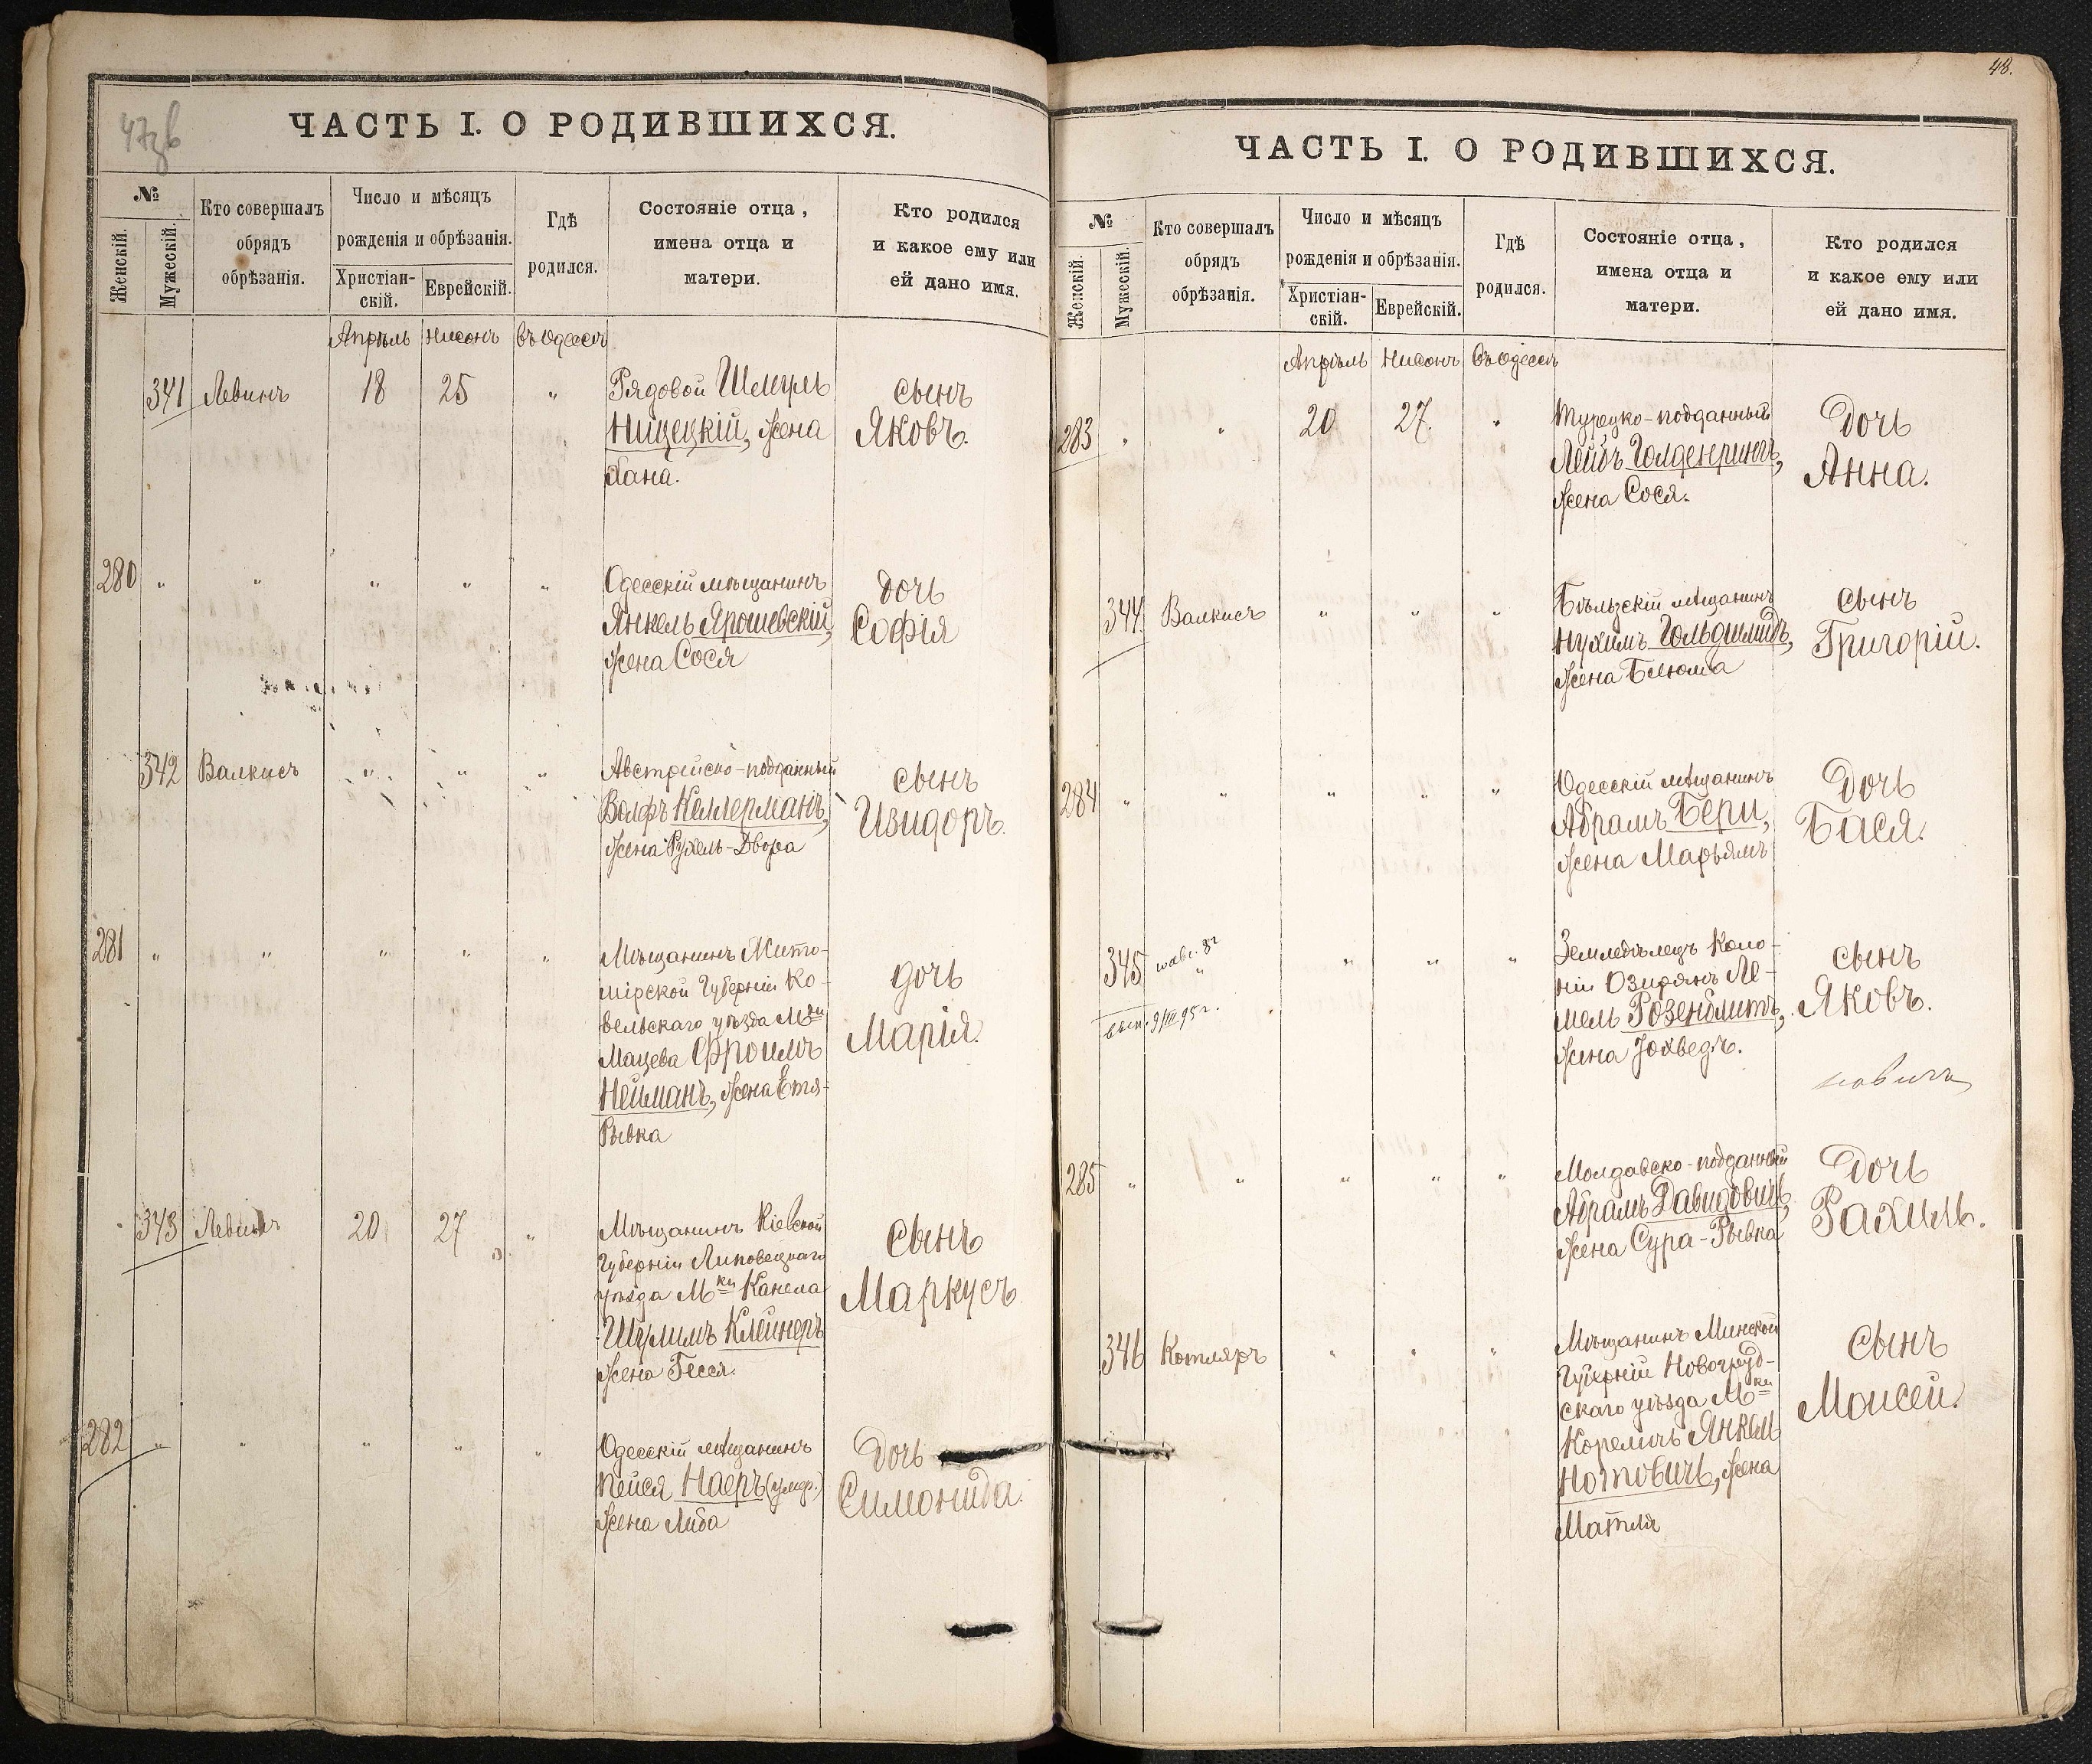 47зв
ЧАСТЬ I. О РОДИВШИХСЯ.
№
Женскій.
Мужескій.
Кто совершалъ
обрядъ
обрѣзанія.
Число и мѣсяцъ
рожденія и обрѣзанія.
Христіан-
скій.
Еврейскій.
Гдѣ
родился.
Состояніе отца,
имена отца и
матери.
Кто родился
и какое ему или
ей дано имя.
Апрѣль Нисонъ въ Одессѣ
341 Левинъ 18 25 " Рядовой Шмуль сынъ
Ницецкій, жена Яковъ.
Хана.
280 " " " " " Одесскій мѣщанинъ дочь
Янкель Ярошевскій, Софія
жена Сося
342 Валкисъ " " " Австрійско-подданный сынъ
Волфъ Келлерманъ, Изидоръ.
жена Рухель-Двора
281 " " " " " Мѣщанинъ Жито-
мірской Губерніи Ко- дочь
вельскаго уѣзда Мки Марія.
Мацева Фроимъ
Нейманъ, жена Етя-
Рывка
343 Левинъ 20 27 " Мѣщанинъ Кіевской сынъ
Губерніи Липовецкаго
уѣзда Мки Канела Маркусъ
Шулимъ Клейнеръ
жена Гися.
282 " " " " " Одесскій мѣщанинъ дочь
Пейся Наеръ (умер.) Симонида.
жена Либа
48.
ЧАСТЬ I. О РОДИВШИХСЯ.
№
Женскій.
Мужескій.
Кто совершалъ
обрядъ
обрѣзанія.
Число и мѣсяцъ
рожденія и обрѣзанія.
Христіан-
скій.
Еврейскій.
Гдѣ
родился.
Состояніе отца,
имена отца и
матери.
Кто родился
и какое ему или
ей дано имя.
Апрѣль Нисонъ въ Одессѣ
283 " " 20 27. " Турецко-подданный Дочь
Лейбъ Голденрингъ, Анна.
жена Сося.
344 Валкисъ " " " Бѣльзскій мѣщанинъ сынъ
Нухимъ Гольдшмидъ, Григорій.
жена Блюма
284 " " " " " Одесскій мѣщанинъ Дочь
Абрамъ Бери, Бася.
жена Марьямъ
345 " " " " Земледѣлецъ Коло- сынъ
ніи Озирянъ Ле- Яковъ.
мель Розенблитъ,
жена Іохведъ.
285 " " " " " Молдавско-подданный Дочь
Абрамъ Давидовичъ Рахиль.
жена Сура-Рывка
346 Котляръ " " " Мѣщанинъ Минской сынъ
Губерніи Новогруд-
скаго уѣзда Мки Моисей.
Корелич Янкель
Нотовичъ, жена
Матля